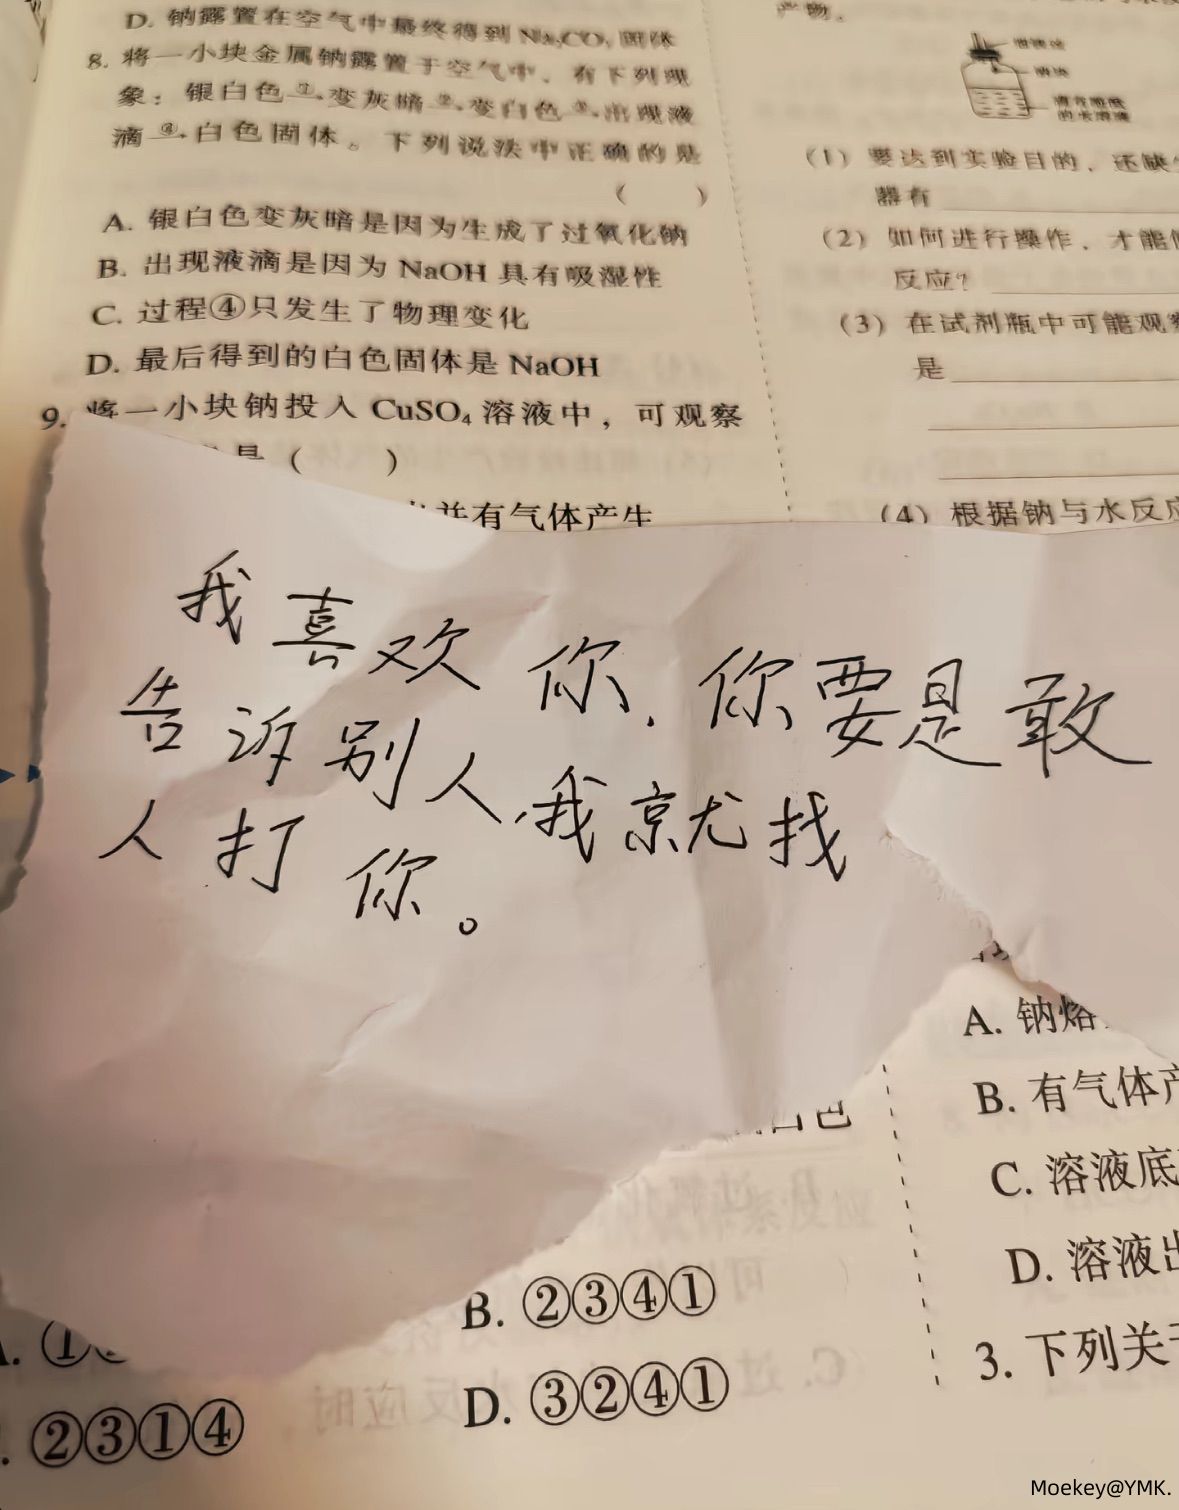 D. 钠露置在空气中最终得到 Na₂CO₃ 固体
8. 将一小块金属钠露置于空气中，有下列现
象：银白色①变灰暗②变白色③出现液
滴④白色固体。下列说法中正确的是
（　　）
A. 银白色变灰暗是因为生成了过氧化钠
B. 出现液滴是因为 NaOH 具有吸湿性
C. 过程④只发生了物理变化
D. 最后得到的白色固体是 NaOH
9. 将一小块钠投入 CuSO₄ 溶液中，可观察
是（　　）
并有气体产生
我喜欢你，你要是敢
告诉别人，我就找
人打你。
B. ②③④①
②③①④
D. ③②④①
产物。
（1）要达到实验目的，还缺
器有
（2）如何进行操作，才能
反应？
（3）在试剂瓶中可能观察
是
（4）根据钠与水反应
A. 钠熔
B. 有气体产
C. 溶液底
D. 溶液出
3. 下列关于
Moekey@YMK.